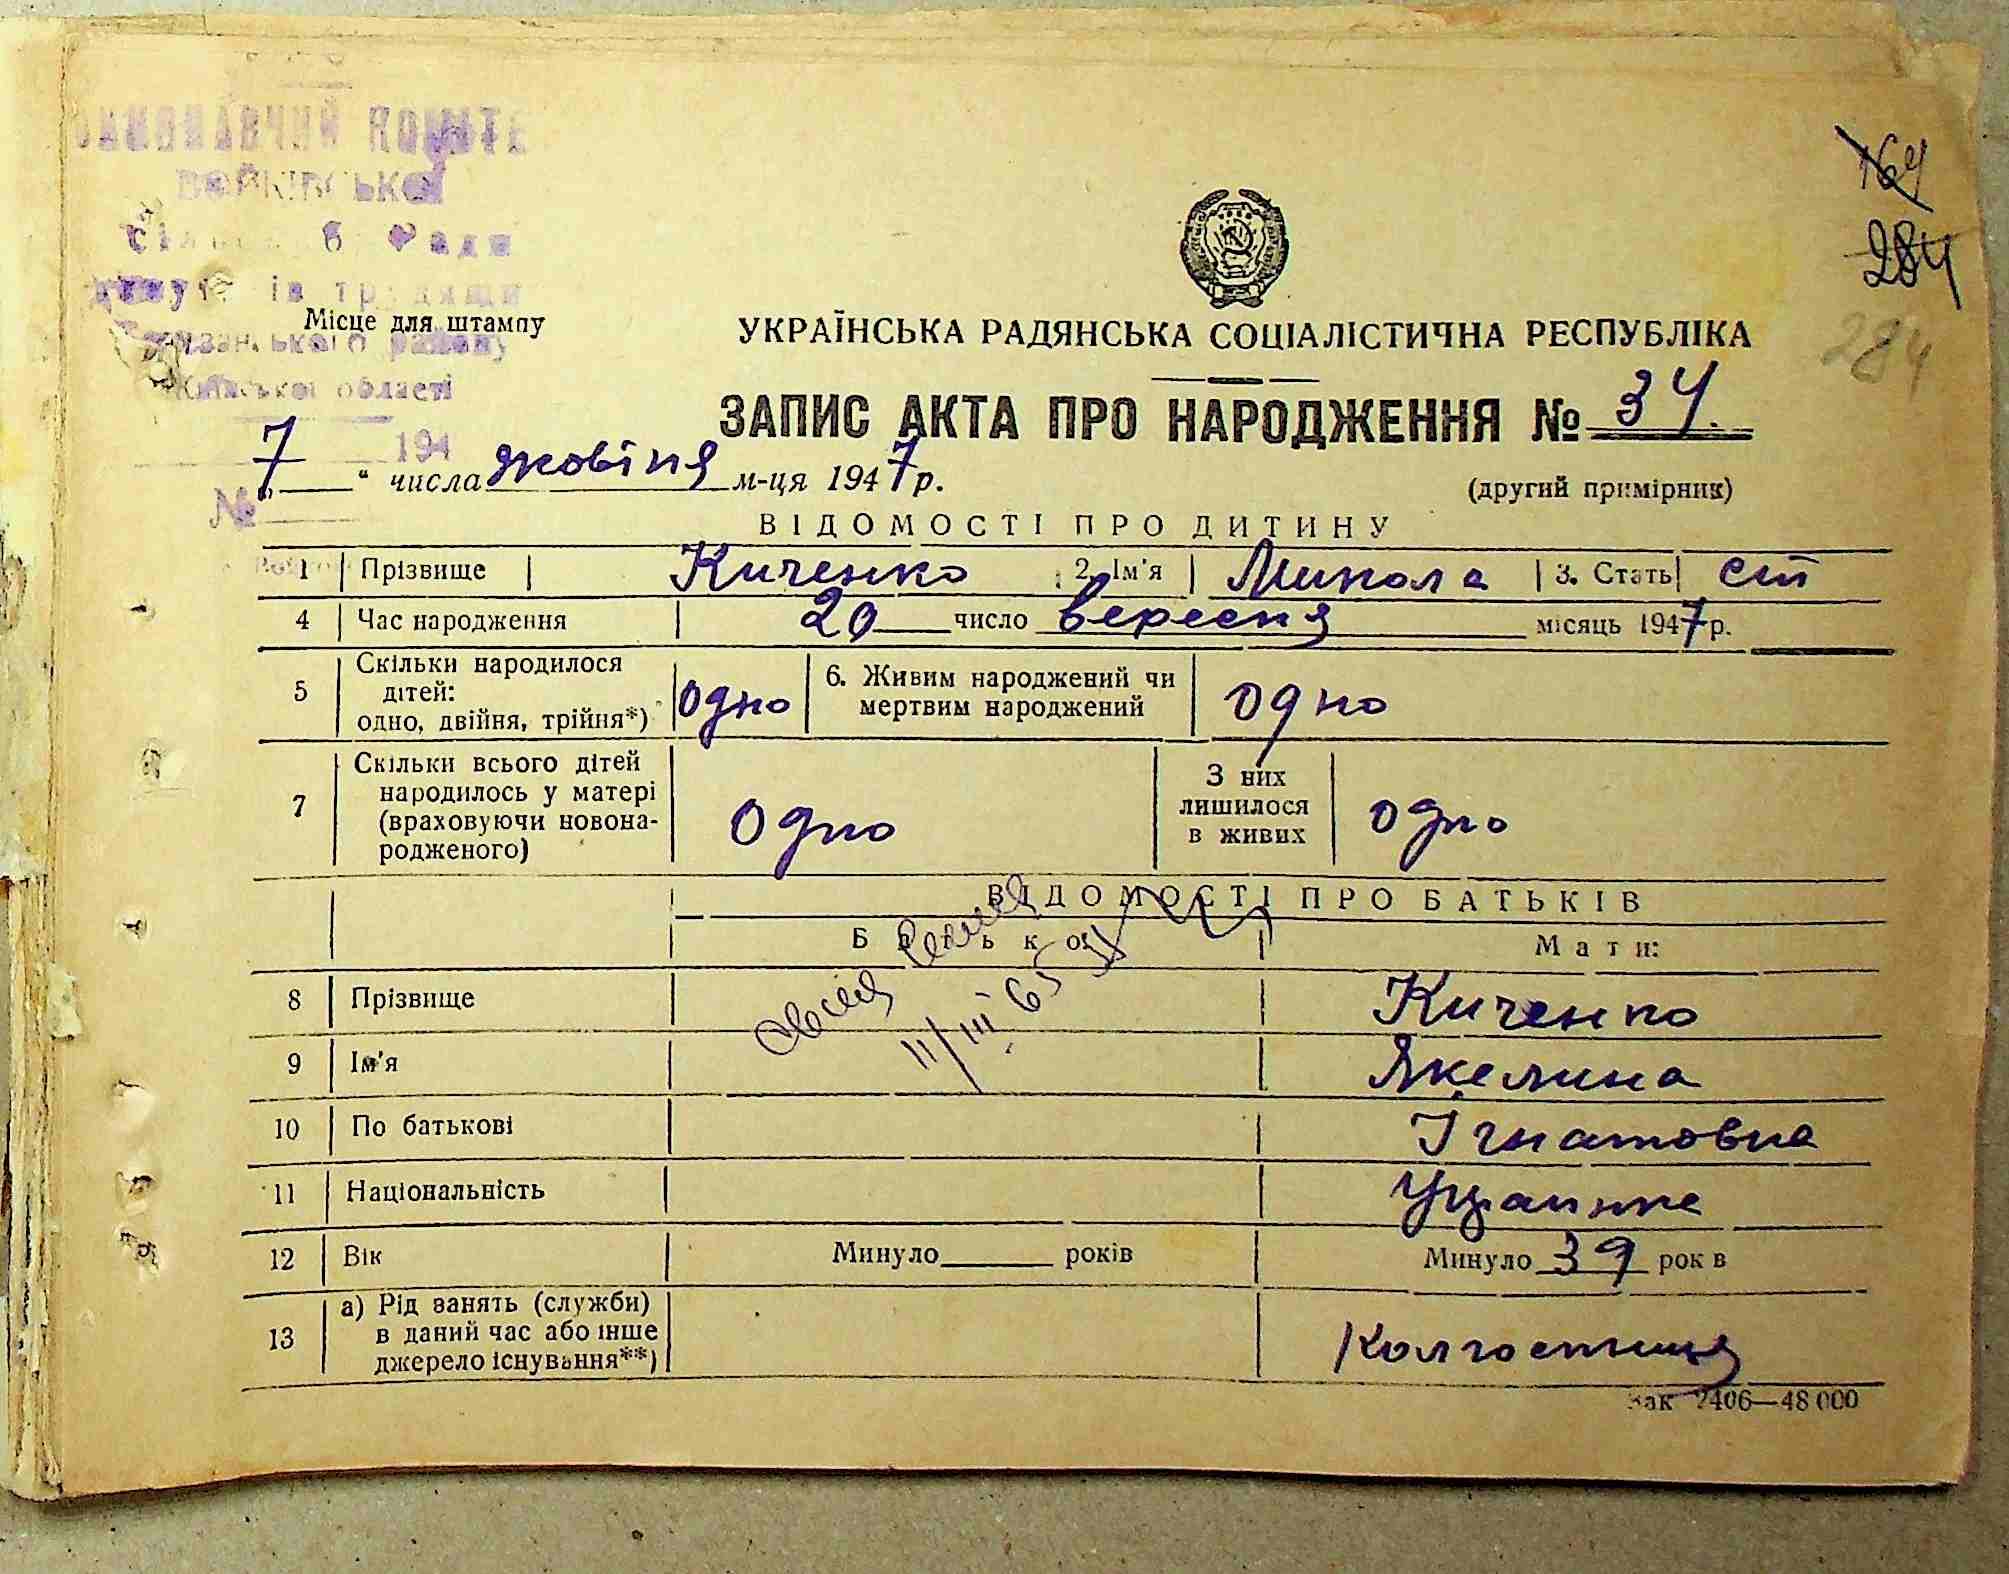 Місце для штампу
районy
Київської області
194
№
164
284
284
УКРАЇНСЬКА РАДЯНСЬКА СОЦІАЛІСТИЧНА РЕСПУБЛІКА
ЗАПИС АКТА ПРО НАРОДЖЕННЯ № 34.
7 " числа жовтня м-ця 1947 р.
(другий примірник)
ВІДОМОСТІ ПРО ДИТИНУ
1 Прізвище Киченко 2. Ім'я Микола 3. Стать
4 Час народження 20 число вересня місяць 1947 р.
5 Скільки народилося дітей: одно, двійня, трійня*) одно 6. Живим народжений чи мертвим народжений одно
7 Скільки всього дітей народилось у матері (враховуючи новонародженого) одно З них лишилося в живих одно
ВІДОМОСТІ ПРО БАТЬКІВ
Батько: Мати:
11/III 65
8 Прізвище Киченко
9 Ім'я Якелина
10 По батькові Ігнатовна
11 Національність Українка
12 Вік Минуло років Минуло 39 рок в
13 а) Рід занять (служби) в даний час або інше джерело існування**) Колгоспниця
Зак 2406—48 000